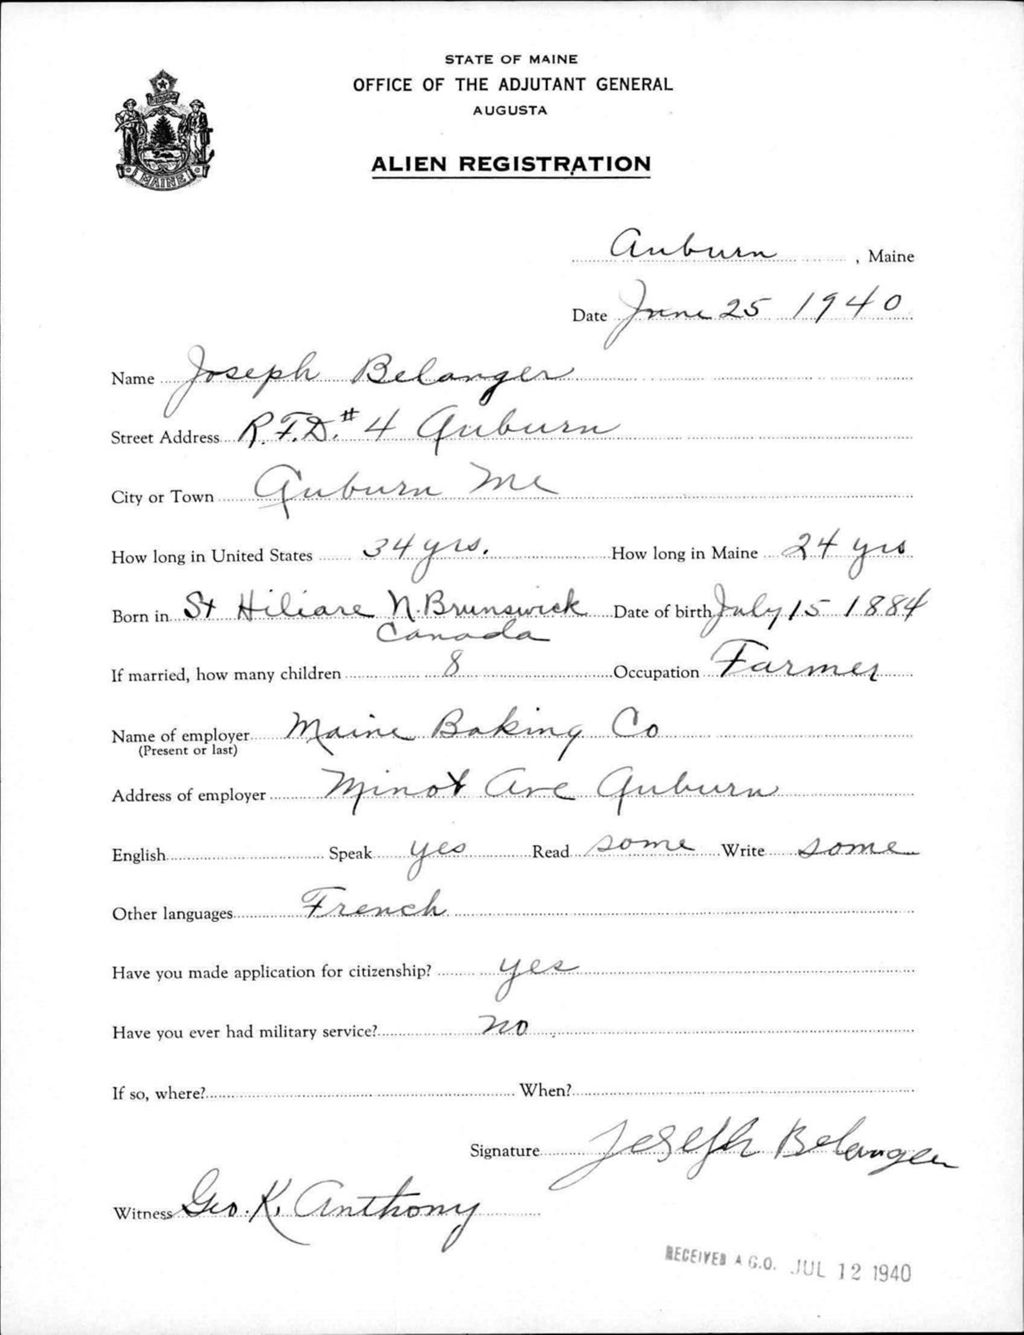 STATE OF MAINE
OFFICE OF THE ADJUTANT GENERAL
AUGUSTA
ALIEN REGISTRATION
MAINE
Auburn, Maine
Date June 25 1940
Name Joseph Belanger
Street Address R.F.D. # 4 Auburn
City or Town Auburn Me
How long in United States 34 yrs. How long in Maine 24 yrs
Born in St Hiliare N. Brunswick Date of birth July 15 1884
Canada
If married, how many children 8 Occupation Farmer
Name of employer Maine Baking Co
(Present or last)
Address of employer Minot Ave Auburn
English Speak yes Read some Write some
Other languages French
Have you made application for citizenship? yes
Have you ever had military service? no
If so, where? When?
Signature Joseph Belanger
Witness Geo. K. Anthony
RECEIVED A.G.O. JUL 12 1940